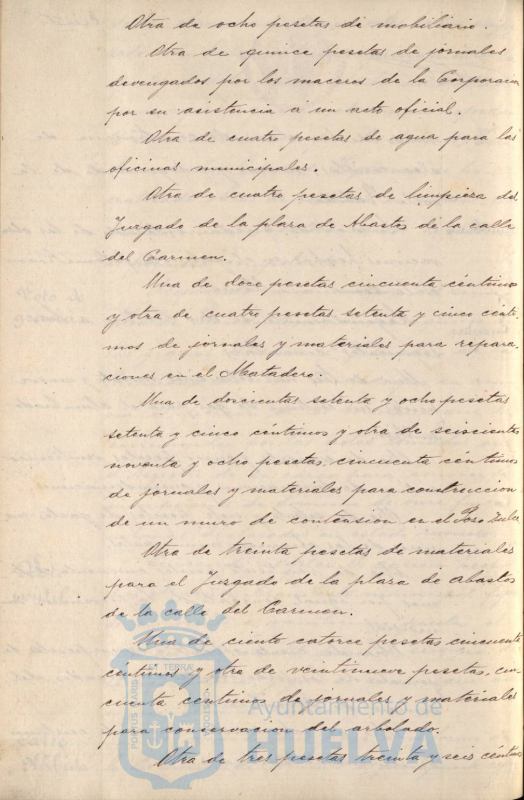 Otra de ocho pesetas de mobiliario.
Otra de quince pesetas de jornales
devengados por los maceros de la Corporacion
por su asistencia á un acto oficial.
Otra de cuatro pesetas de agua para las
oficinas municipales.
Otra de cuatro pesetas de limpieza del
Juzgado de la plaza de Abastos de la calle
del Carmen.
Una de doce pesetas cincuenta céntimos
y otra de cuatro pesetas setenta y cinco cénti-
mos de jornales y materiales para repara-
ciones en el Matadero.
Una de doscientas setenta y ocho pesetas
setenta y cinco céntimos y otra de seiscientas
noventa y ocho pesetas, cincuenta céntimos
de jornales y materiales para construccion
de un muro de contension en el
Otra de treinta pesetas de materiales
para el Juzgado de la plaza de abastos
de la calle del Carmen.
Una de ciento catorce pesetas cincuenta
centimos y otra de veintinueve pesetas, cin-
cuenta centimos de jornales y materiales
para conservacion del arbolado.
Otra de tres pesetas treinta y seis céntimos
Ayuntamiento de
HUELVA